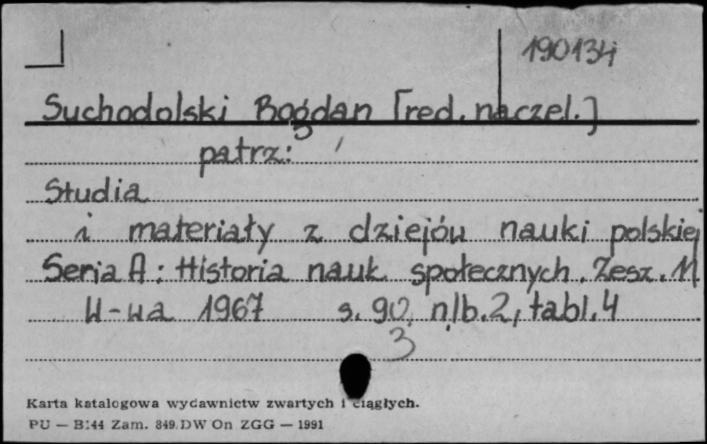 190134
Suchodolski Bogdan [red. naczel.]
patrz:
Studia
i materiały z dziejów nauki polskiej
Seria A: Historia nauk społecznych. Zesz. 11
W-wa 1967 s. 90, nlb. 2, tabl. 4
3
Karta katalogowa wydawnictw zwartych i ciągłych.
PU — B:44 Zam. 849.DW On ZGG — 1991